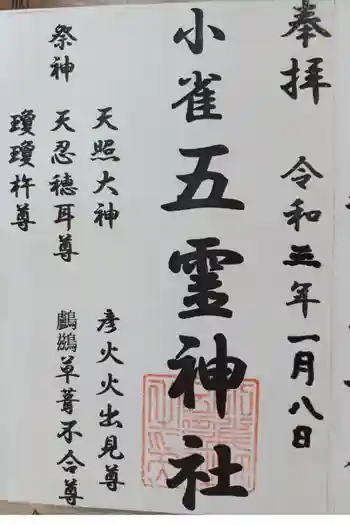 奉拝　令和三年一月八日
小雀五霊神社
祭神
天照大神　彦火火出見尊
天忍穂耳尊　鸕鷀草葺不合尊
瓊瓊杵尊